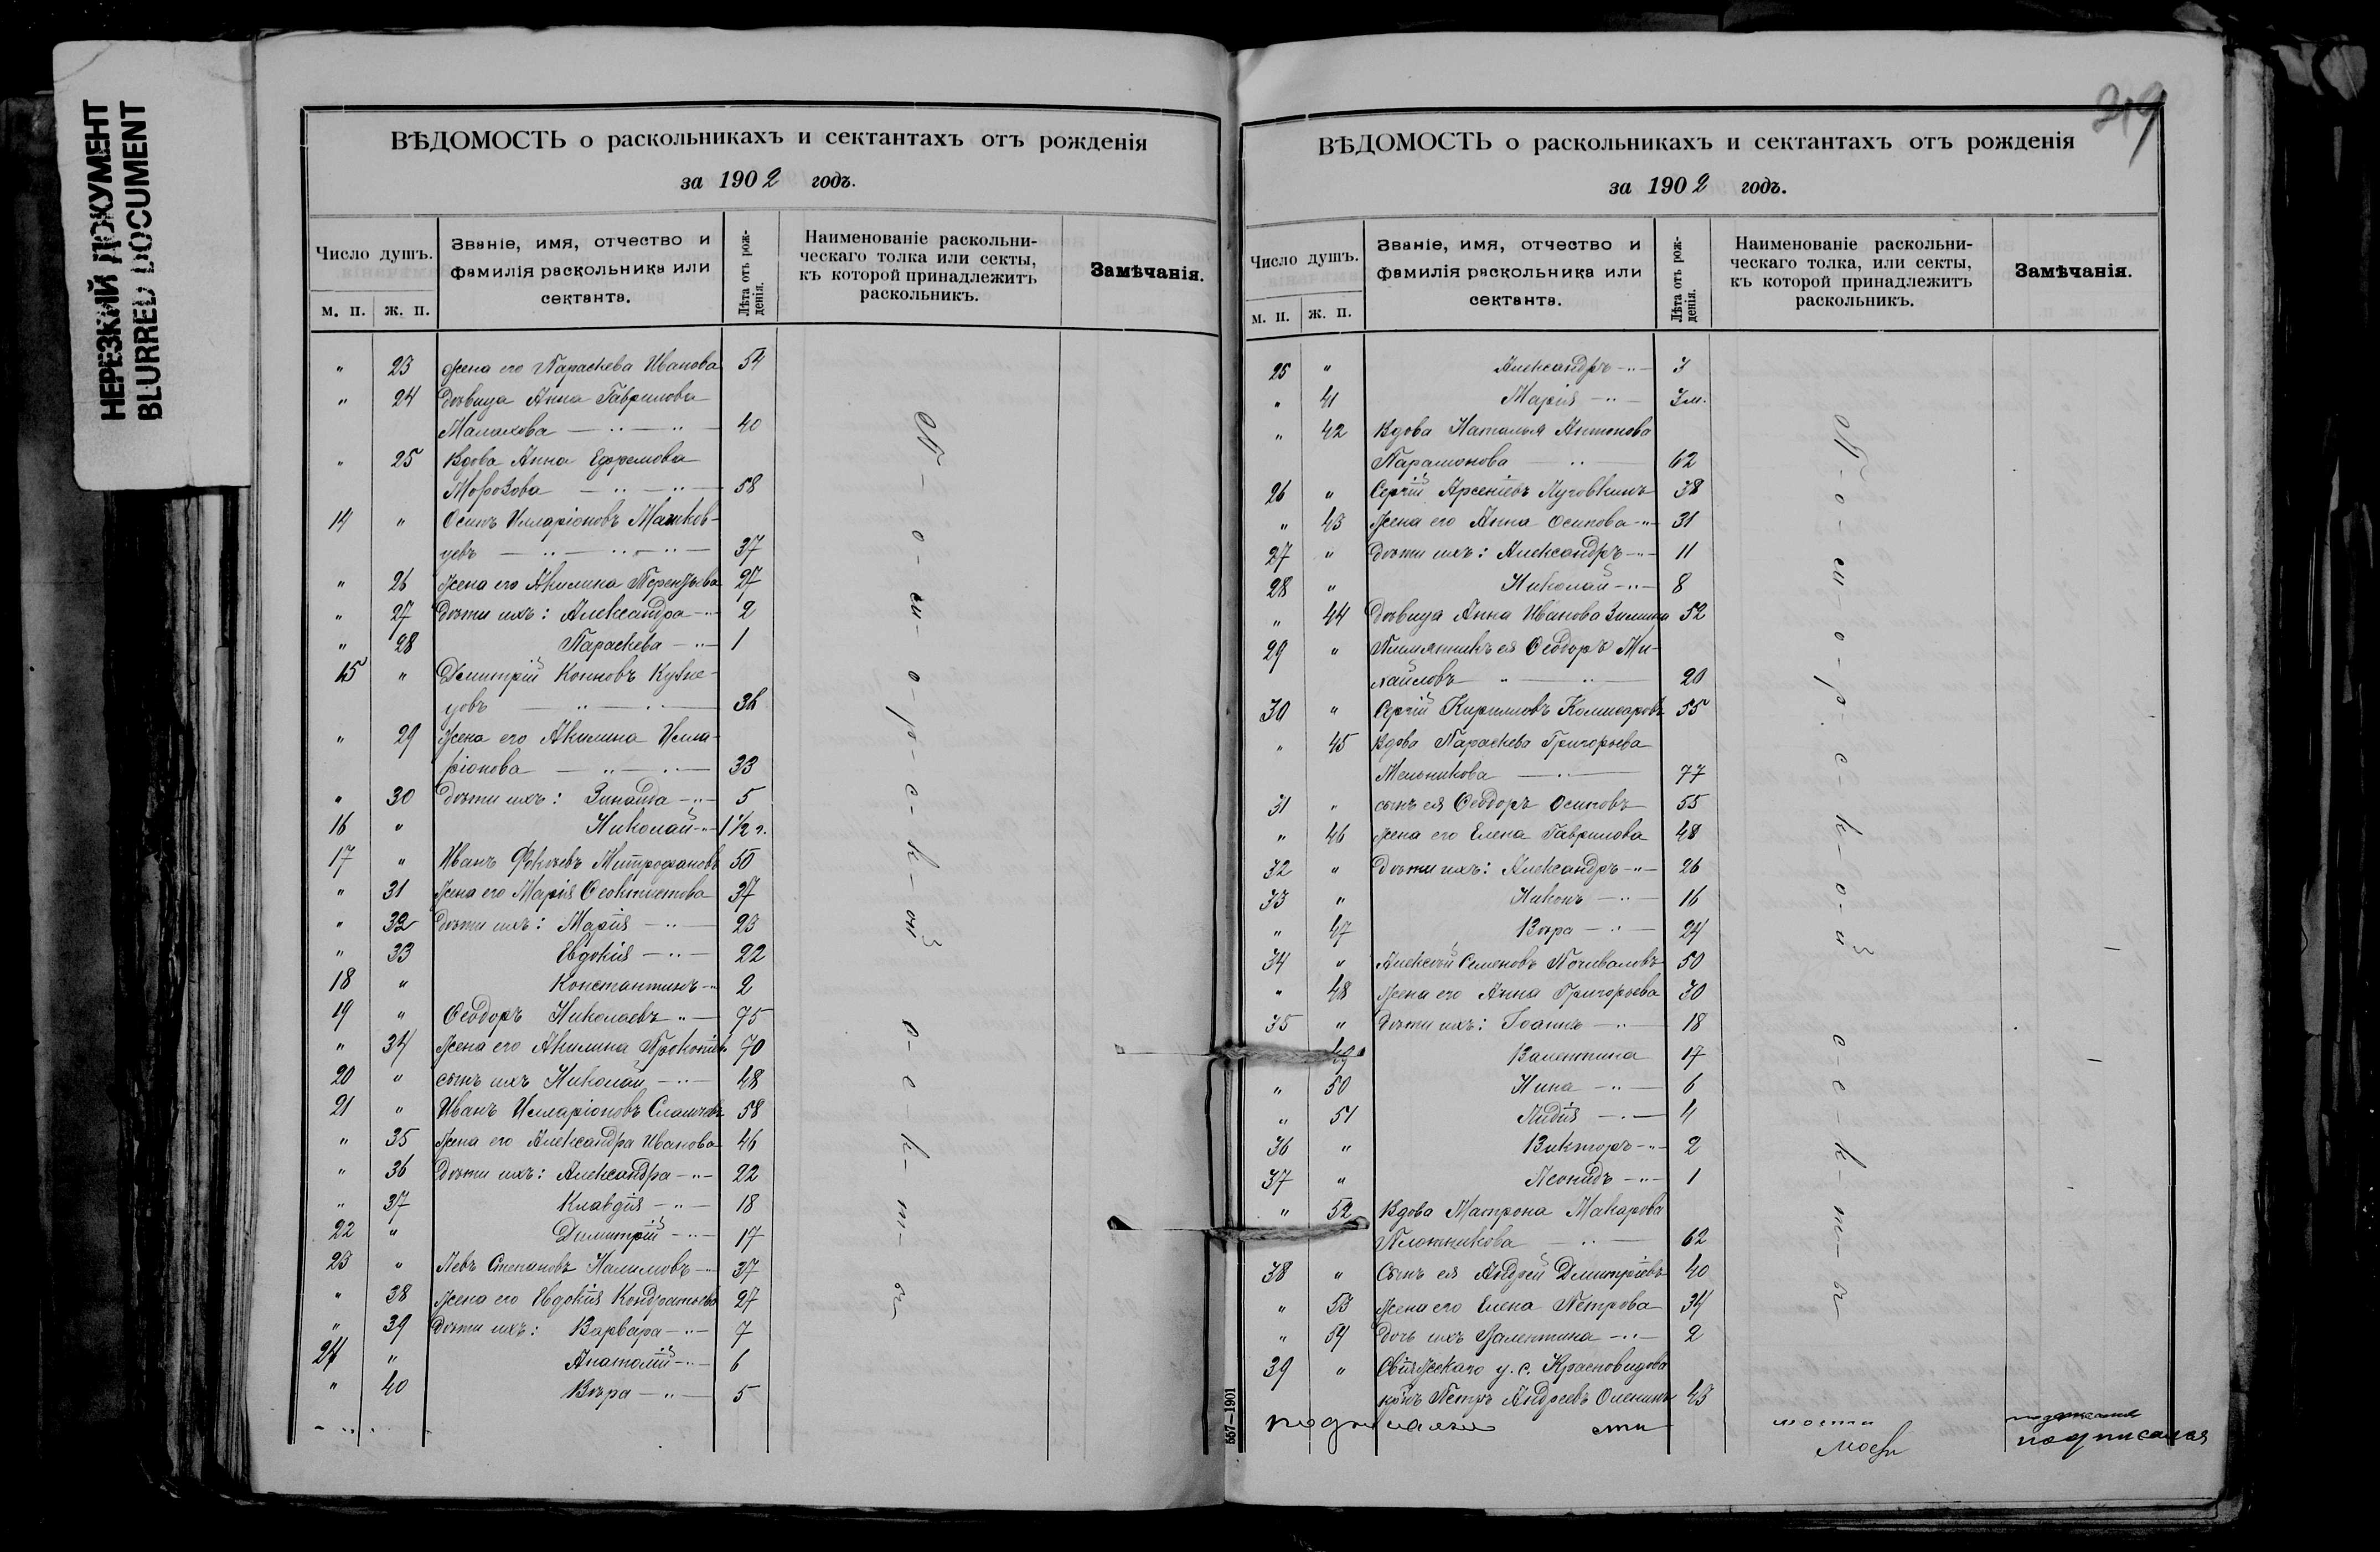 НЕРЕЗКИЙ ДОКУМЕНТ
BLURRED DOCUMENT
ВѢДОМОСТЬ о раскольникахъ и сектантахъ отъ рожденія
за 1902 годъ.
Число душъ.
м. п. ж. п.
Званіе, имя, отчество и
фамилія раскольника или
сектанта.
Лѣта отъ рож-
денія.
Наименованіе раскольни-
ческаго толка или секты,
къ которой принадлежитъ
раскольникъ.
Замѣчанія.
" 23 Жена его Параскева Иванова 54
" 24 Дѣвица Анна Гаврилова
Малахова 40
" 25 Вдова Анна Ефремова
Морозова 58
14 " Осипъ Илларіоновъ Машков-
цевъ 37
" 26 Жена его Акилина Терентьева 27
" 27 Дѣти ихъ: Александра 2
" 28 Параскева 1
15 " Димитрій Кононовъ Кузне-
цовъ 36
" 29 Жена его Акилина Илла-
ріонова 33
" 30 Дѣти ихъ: Зинаида 5
16 " Николай 1½ г.
17 " Иванъ Фокіевъ Митрофановъ 50
" 31 Жена его Марія Ѳеоктистова 37
" 32 Дѣти ихъ: Марія 23
" 33 Евдокія 22
18 " Константинъ 2
19 " Ѳеодоръ Николаевъ 75
" 34 Жена его Акилина Прокопіев. 70
20 " сынъ ихъ Николай 48
21 " Иванъ Илларіоновъ 58
" 35 Жена его Александра Иванова 46
" 36 Дѣти ихъ: Александра 22
" 37 Клавдія 18
22 " Димитрій 17
23 " Левъ Степановъ Налимовъ 37
" 38 Жена его Евдокія Кондратьева 27
" 39 Дѣти ихъ: Варвара 7
24 " Анатолій 6
" 40 Вѣра 5
П-о-м-о-р-с-к-ой
с-е-к-т-ы
219
ВѢДОМОСТЬ о раскольникахъ и сектантахъ отъ рожденія
за 1902 годъ.
Число душъ.
м. п. ж. п.
Званіе, имя, отчество и
фамилія раскольника или
сектанта.
Лѣта отъ рож-
денія.
Наименованіе раскольни-
ческаго толка, или секты,
къ которой принадлежитъ
раскольникъ.
Замѣчанія.
25 " Александръ 3
" 41 Марія 3 м.
" 42 Вдова Наталья Антонова
Парамонова 62
26 " Сергій Арсеніевъ Луговкинъ 38
" 43 Жена его Анна Осипова 31
27 " Дѣти ихъ: Александръ 11
28 " Николай 8
" 44 Дѣвица Анна Иванова Зимина 52
29 " Племянникъ ея Ѳеодоръ Ми-
хайловъ 20
30 " Сергій Кирилловъ Комисаровъ 55
" 45 Вдова Параскева Григорьева
Мельникова 77
31 " сынъ ея Ѳеодоръ Осиповъ 55
" 46 Жена его Елена Гаврилова 48
32 " Дѣти ихъ: Александръ 26
33 " Никонъ 16
" 47 Вѣра 24
34 " Алексѣй Семеновъ Почиваловъ 50
" 48 Жена его Анна Григорьева 30
35 " Дѣти ихъ: Іоаннъ 18
49 Валентина 17
" 50 Нина 6
" 51 Лидія 4
36 " Викторъ 2
37 " Леонидъ 1
" 52 Вдова Матрона Макарова
Плотникова 62
38 " Сынъ ея Андрей Дмитріевъ 40
" 53 Жена его Елена Петрова 34
" 54 Дочь ихъ Валентина 2
39 " Свіяжскаго у. с. Красновидова
кр-нъ Петръ Андреевъ Оленинъ 43
П-о-м-о-р-с-к-о-й
с-е-к-т-ы
557—1901